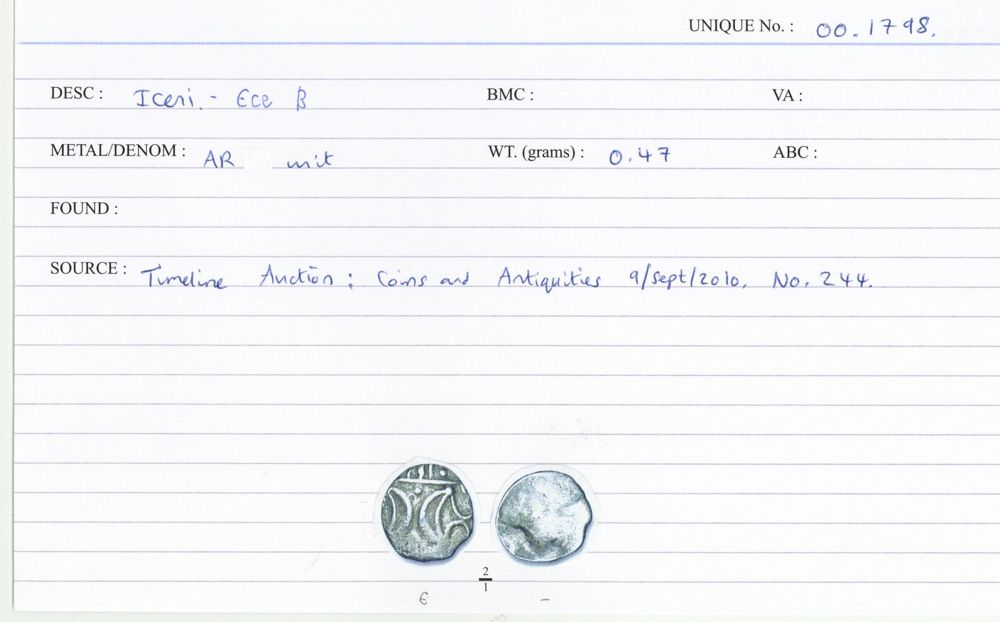 UNIQUE No. : 00.1798.
DESC : Iceni. - Ece B BMC : VA :
METAL/DENOM : AR unit WT. (grams) : 0.47 ABC :
FOUND :
SOURCE : Timeline Auction : Coins and Antiquities 9/Sept/2010. No. 244.
2
1
€ -